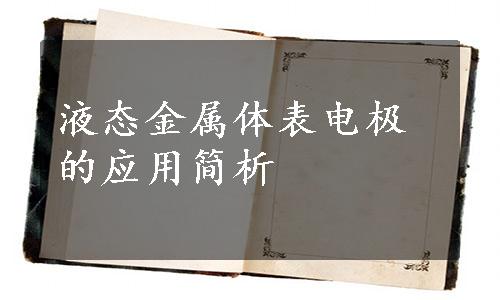 液态金属体表电极
的应用简析